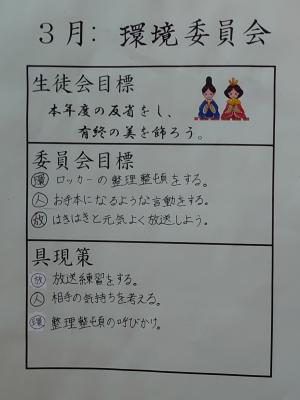 3月: 環境委員会
生徒会目標
本年度の反省をし、
有終の美を飾ろう。
委員会目標
環 ロッカーの整理整頓をする。
人 お手本になるような言動をする。
放 はきはきと元気よく放送しよう。
具現策
放 放送練習をする。
人 相手の気持ちを考える。
環 整理整頓の呼びかけ。